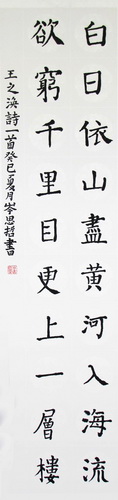 白日依山盡黄河入海流
欲窮千里目更上一層樓
王之渙詩一首癸巳夏月岑思哲書